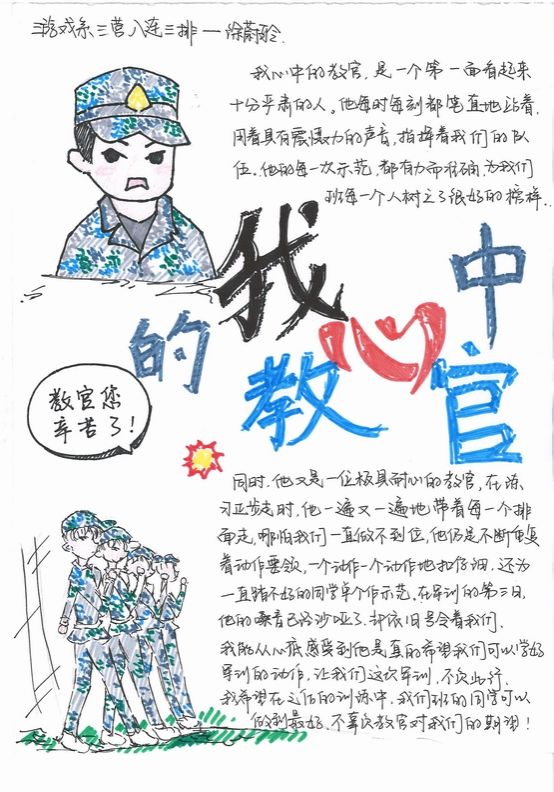 游戏系三营八连三排一徐蔚聆.
我心中的教官,是一个第一面看起来
十分严肃的人。他每时每刻都笔直地站着,
用着具有震慑力的声音,指挥着我们的队
伍。他的每一次示范,都有力而准确,为我们
班每一个人树立了很好的榜样..
我心中
的教官
教官您
辛苦了!
同时,他又是一位极具耐心的教官,在练
习正步走时,他一遍又一遍地带着每一个排
面走,哪怕我们一直做不到位,他仍是不断重复
着动作要领,一个动作一个动作地扣仔细.还为
一直踢不好的同学单个作示范.在军训的第三日,
他的嗓音已经沙哑了.却依旧号令着我们.
我能从心底感受到他是真的希望我们可以学好
军训的动作,让我们这次军训,不虚此行.
我希望在之后的训练中,我们班的同学可以
做到最好,不辜负教官对我们的期望!